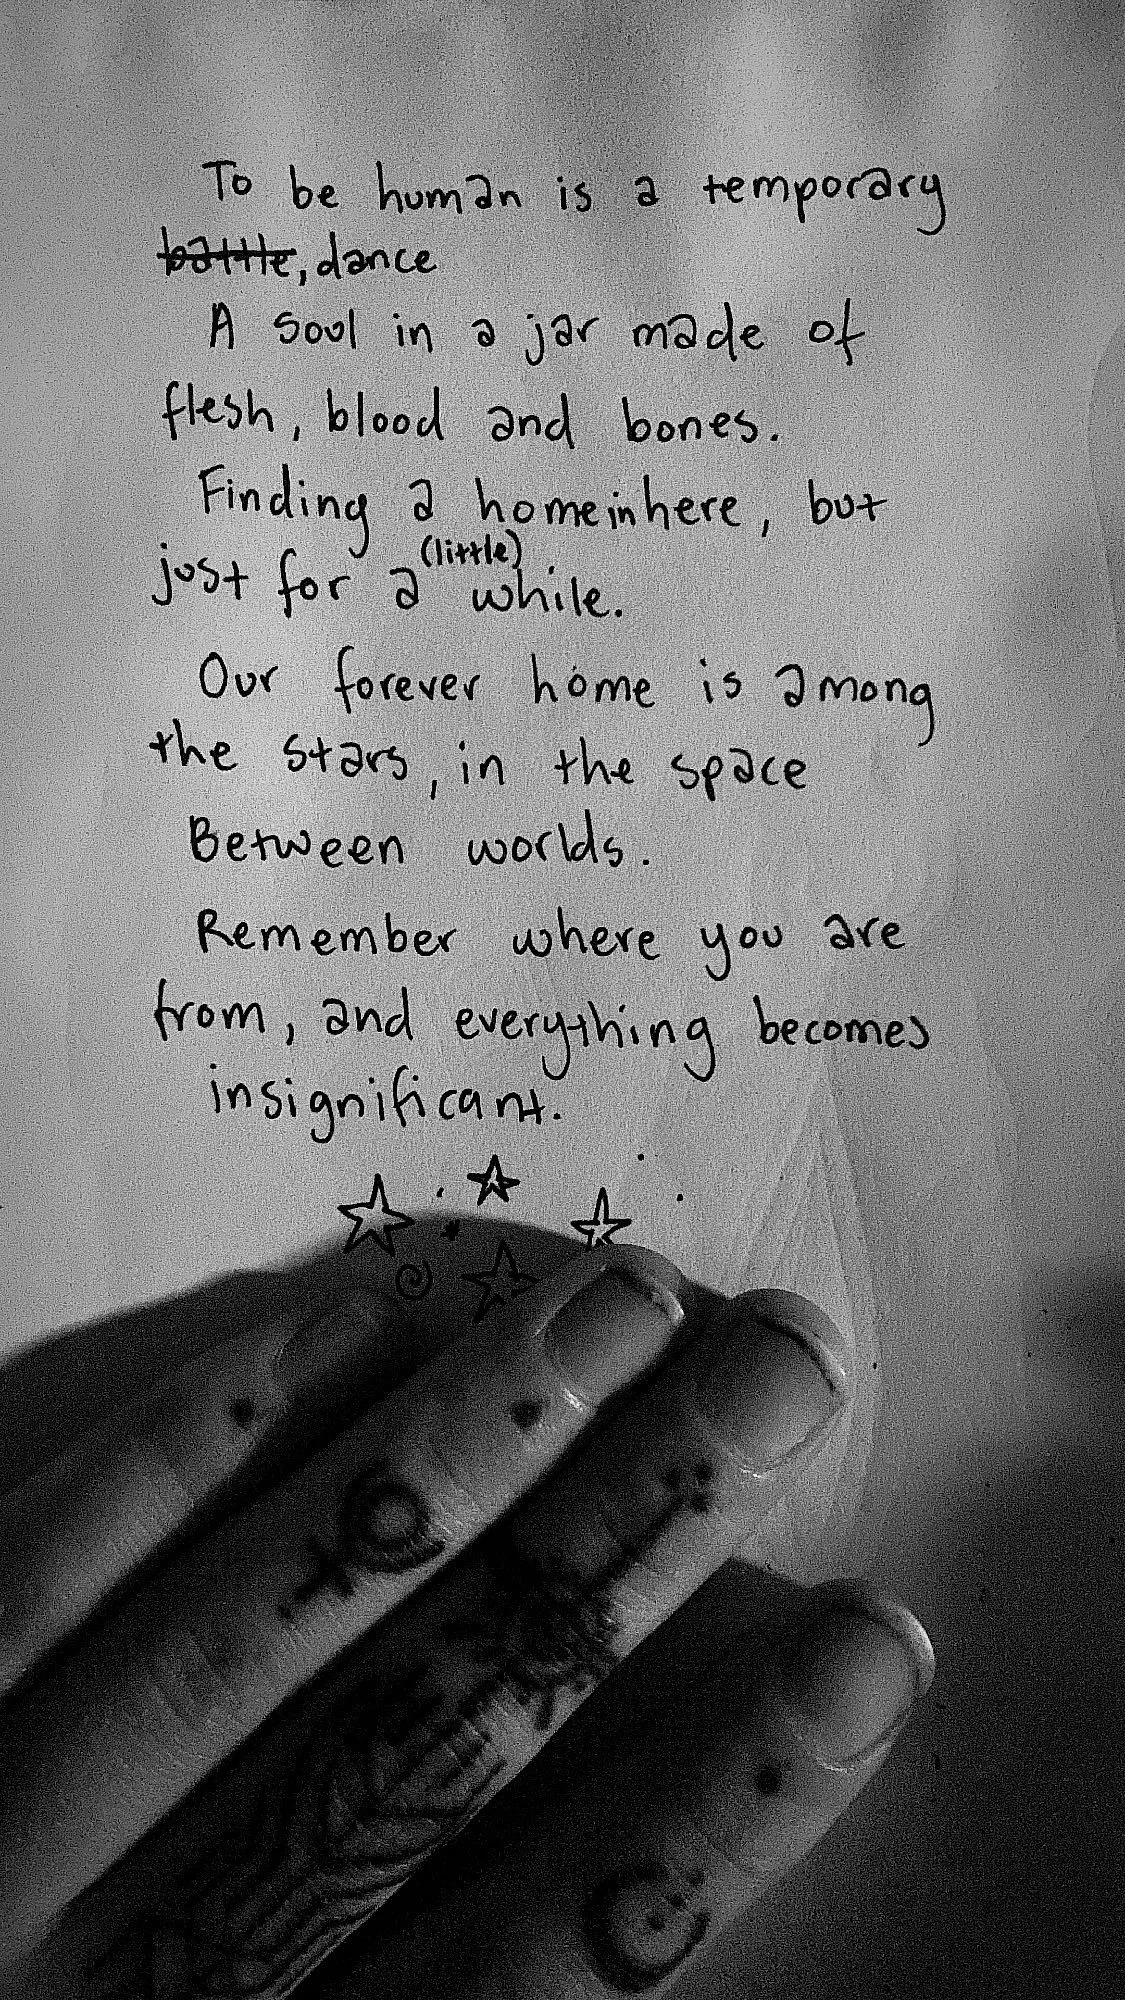 To be human is a temporary
battle, dance
A soul in a jar made of
flesh, blood and bones.
Finding a home in here, but
(little)
just for a while.
Our forever home is among
the stars, in the space
Between worlds.
Remember where you are
from, and everything becomes
insignificant.